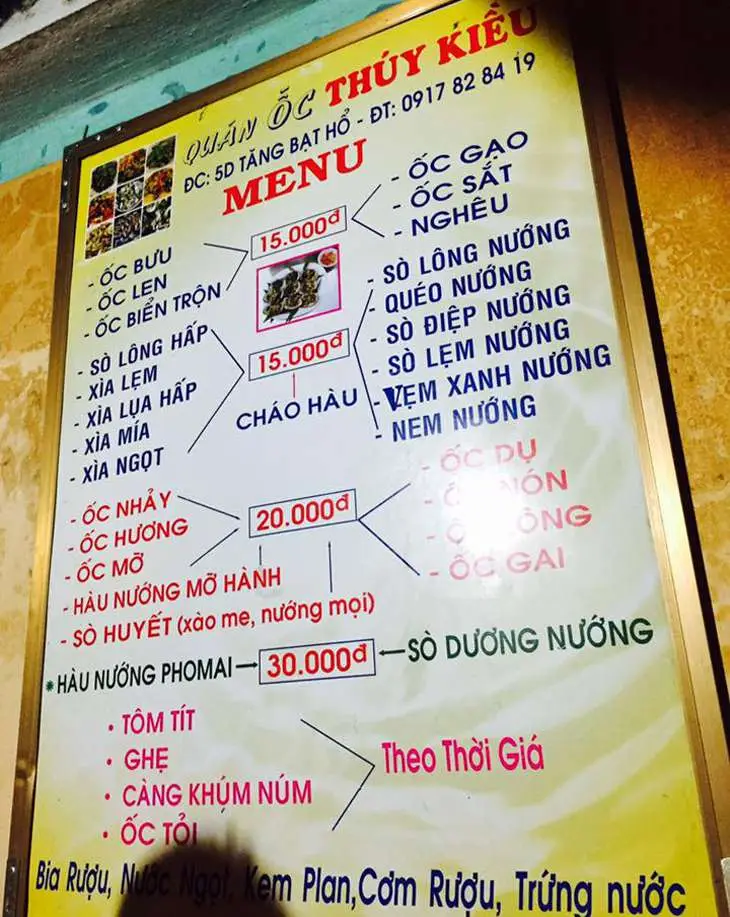 QUÁN ỐC THÚY KIỀU
ĐC: 5D TĂNG BẠT HỔ - ĐT: 0917 82 84 19
MENU
- ỐC BƯU
- ỐC LEN
- ỐC BIỂN TRỘN
15.000đ
- ỐC GẠO
- ỐC SẮT
- NGHÊU
- SÒ LÔNG HẤP
- XÌA LẸM
- XÌA LỤA HẤP
- XÌA MÍA
- XÌA NGỌT
15.000đ
CHÁO HÀU
- SÒ LÔNG NƯỚNG
- QUÉO NƯỚNG
- SÒ ĐIỆP NƯỚNG
- SÒ LẸM NƯỚNG
- VẸM XANH NƯỚNG
- NEM NƯỚNG
- ỐC NHẢY
- ỐC HƯƠNG
- ỐC MỠ
- HÀU NƯỚNG MỠ HÀNH
- SÒ HUYẾT (xào me, nướng mọi)
20.000đ
- ỐC DỤ
- NÓN
- ỐC GAI
* HÀU NƯỚNG PHOMAI
30.000đ
SÒ DƯƠNG NƯỚNG
• TÔM TÍT
• GHẸ
• CÀNG KHÚM NÚM
• ỐC TỎI
Theo Thời Giá
Bia Rượu, Nước Ngọt, Kem Plan, Cơm Rượu, Trứng nước